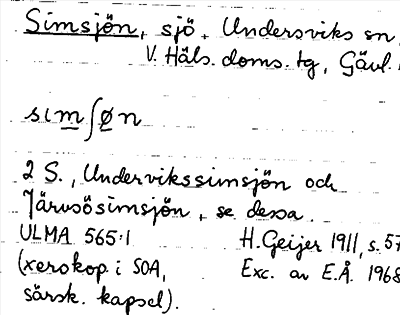 Simsjön, sjö, Undersviks sn,
V. Häls. doms. tg, Gävl.
simʃøn
2 S., Undervikssimsjön och
Järvsösimsjön, se dessa.
ULMA 565:1 H. Geijer 1911, s. 57
(xerokop. i SOA, Exc. av E.Å. 1968
särsk. kapsel).